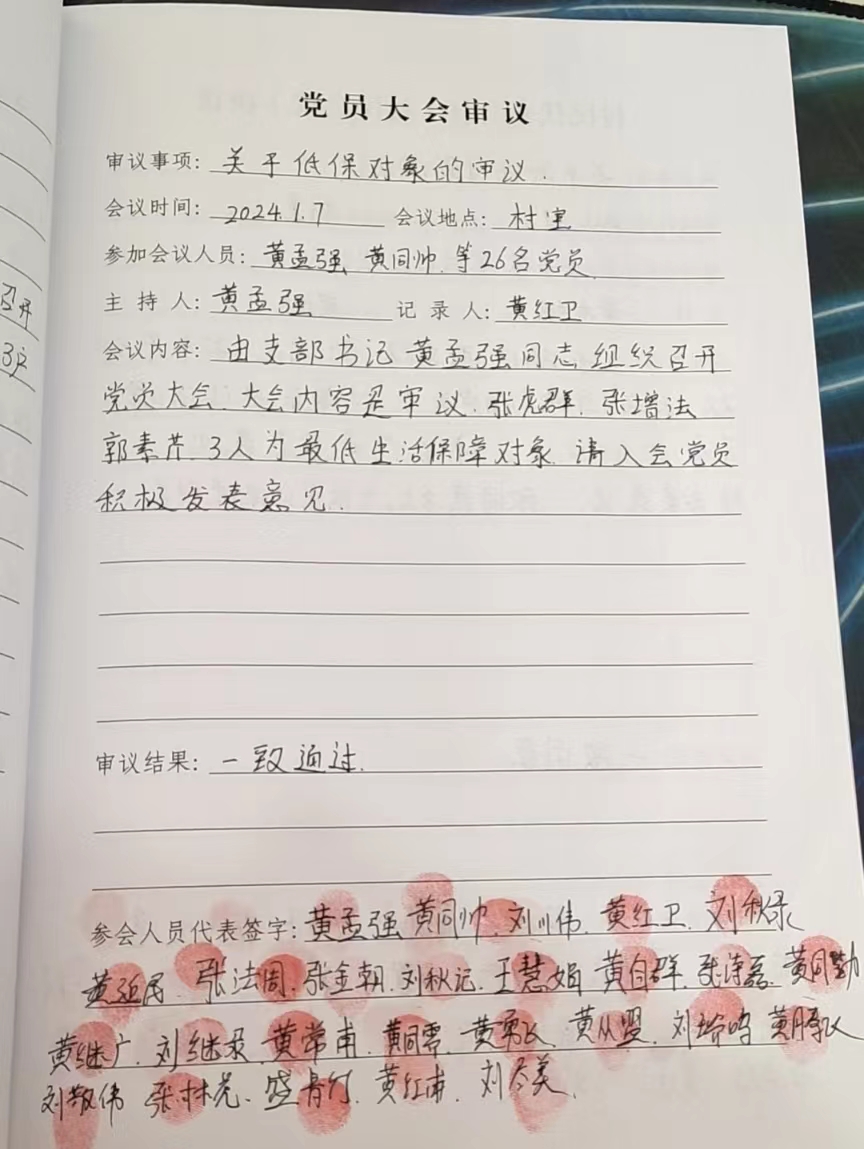 召开
3户
党员大会审议
审议事项: 关于低保对象的审议.
会议时间: 2024.1.7 会议地点: 村室
参加会议人员: 黄孟强 黄同帅 等26名党员
主持人: 黄孟强 记录人: 黄红卫
会议内容: 由支部书记黄孟强同志组织召开
党员大会.大会内容是审议.张虎群.张增法
郭素芹.3人为最低生活保障对象.请入会党员
积极发表意见.
审议结果: 一致通过.
参会人员代表签字: 黄孟强 黄同帅. 刘川伟. 黄红卫. 刘秋录
黄延民. 张法周. 张金朝. 刘秋记. 王慧娟 黄自群. 黄同勤
黄继广. 刘继录. 黄常甫. 黄从盟.
刘敬伟 张林光. 黄红甫. 刘尽美.